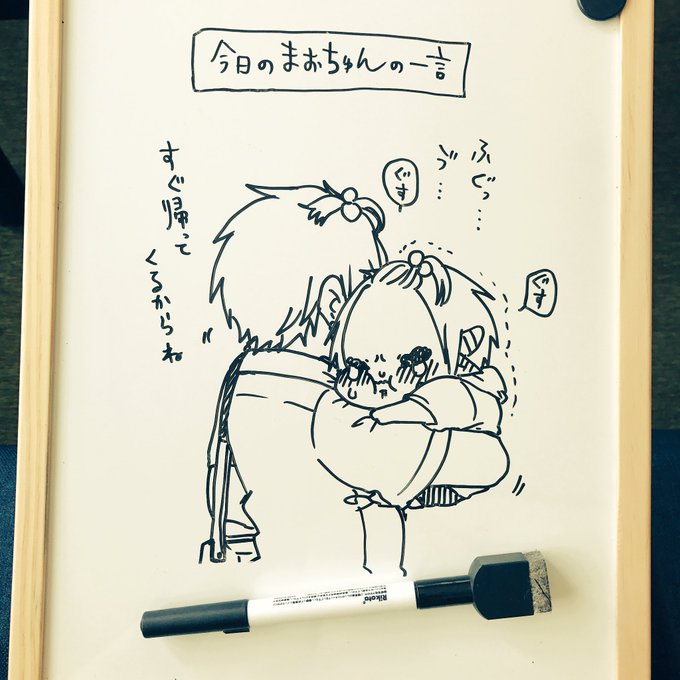 今日のまおちゅんの一言
ふぐっ…
ゔっ…
ぐす
ぐす
すぐ帰って
くるからね
Rikota